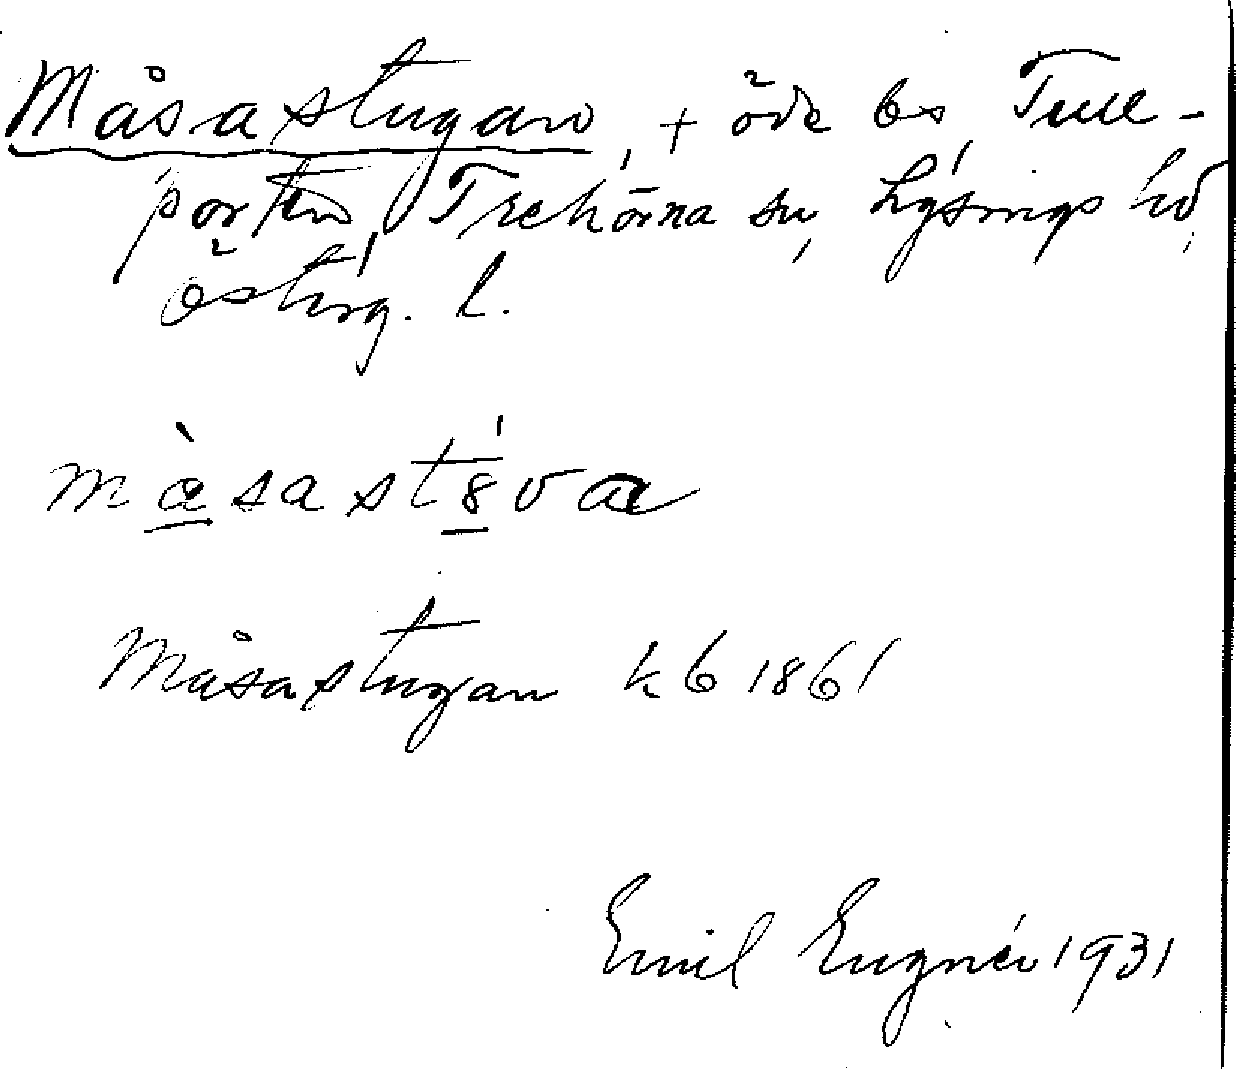 Måsastugan, + öde bs Tull-
porten, Trehörna sn, Lysings hd,
Östirg. l.
màsastśva
Måsastugan kb 1861
Emil Eugnév 1931